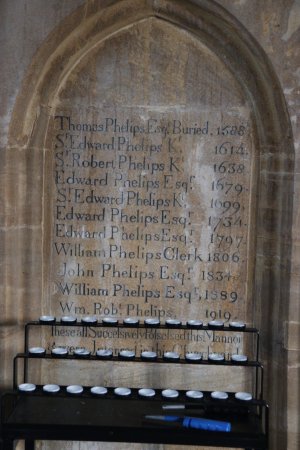 Thomas Phelips Esqr. Buried, 1588
Sr. Edward Phelips Kt. 1614
Sr. Robert Phelips Kt. 1638
Edward Phelips Esqr. 1679
Sr. Edward Phelips Kt. 1699
Edward Phelips Esqr. 1734
Edward Phelips Esqr. 1797
William Phelips Clerk 1806
John Phelips Esqr. 1834
William Phelips Esqr. 1889
Wm. Robt. Phelips 1919
These all Successively Possessed this Mannor